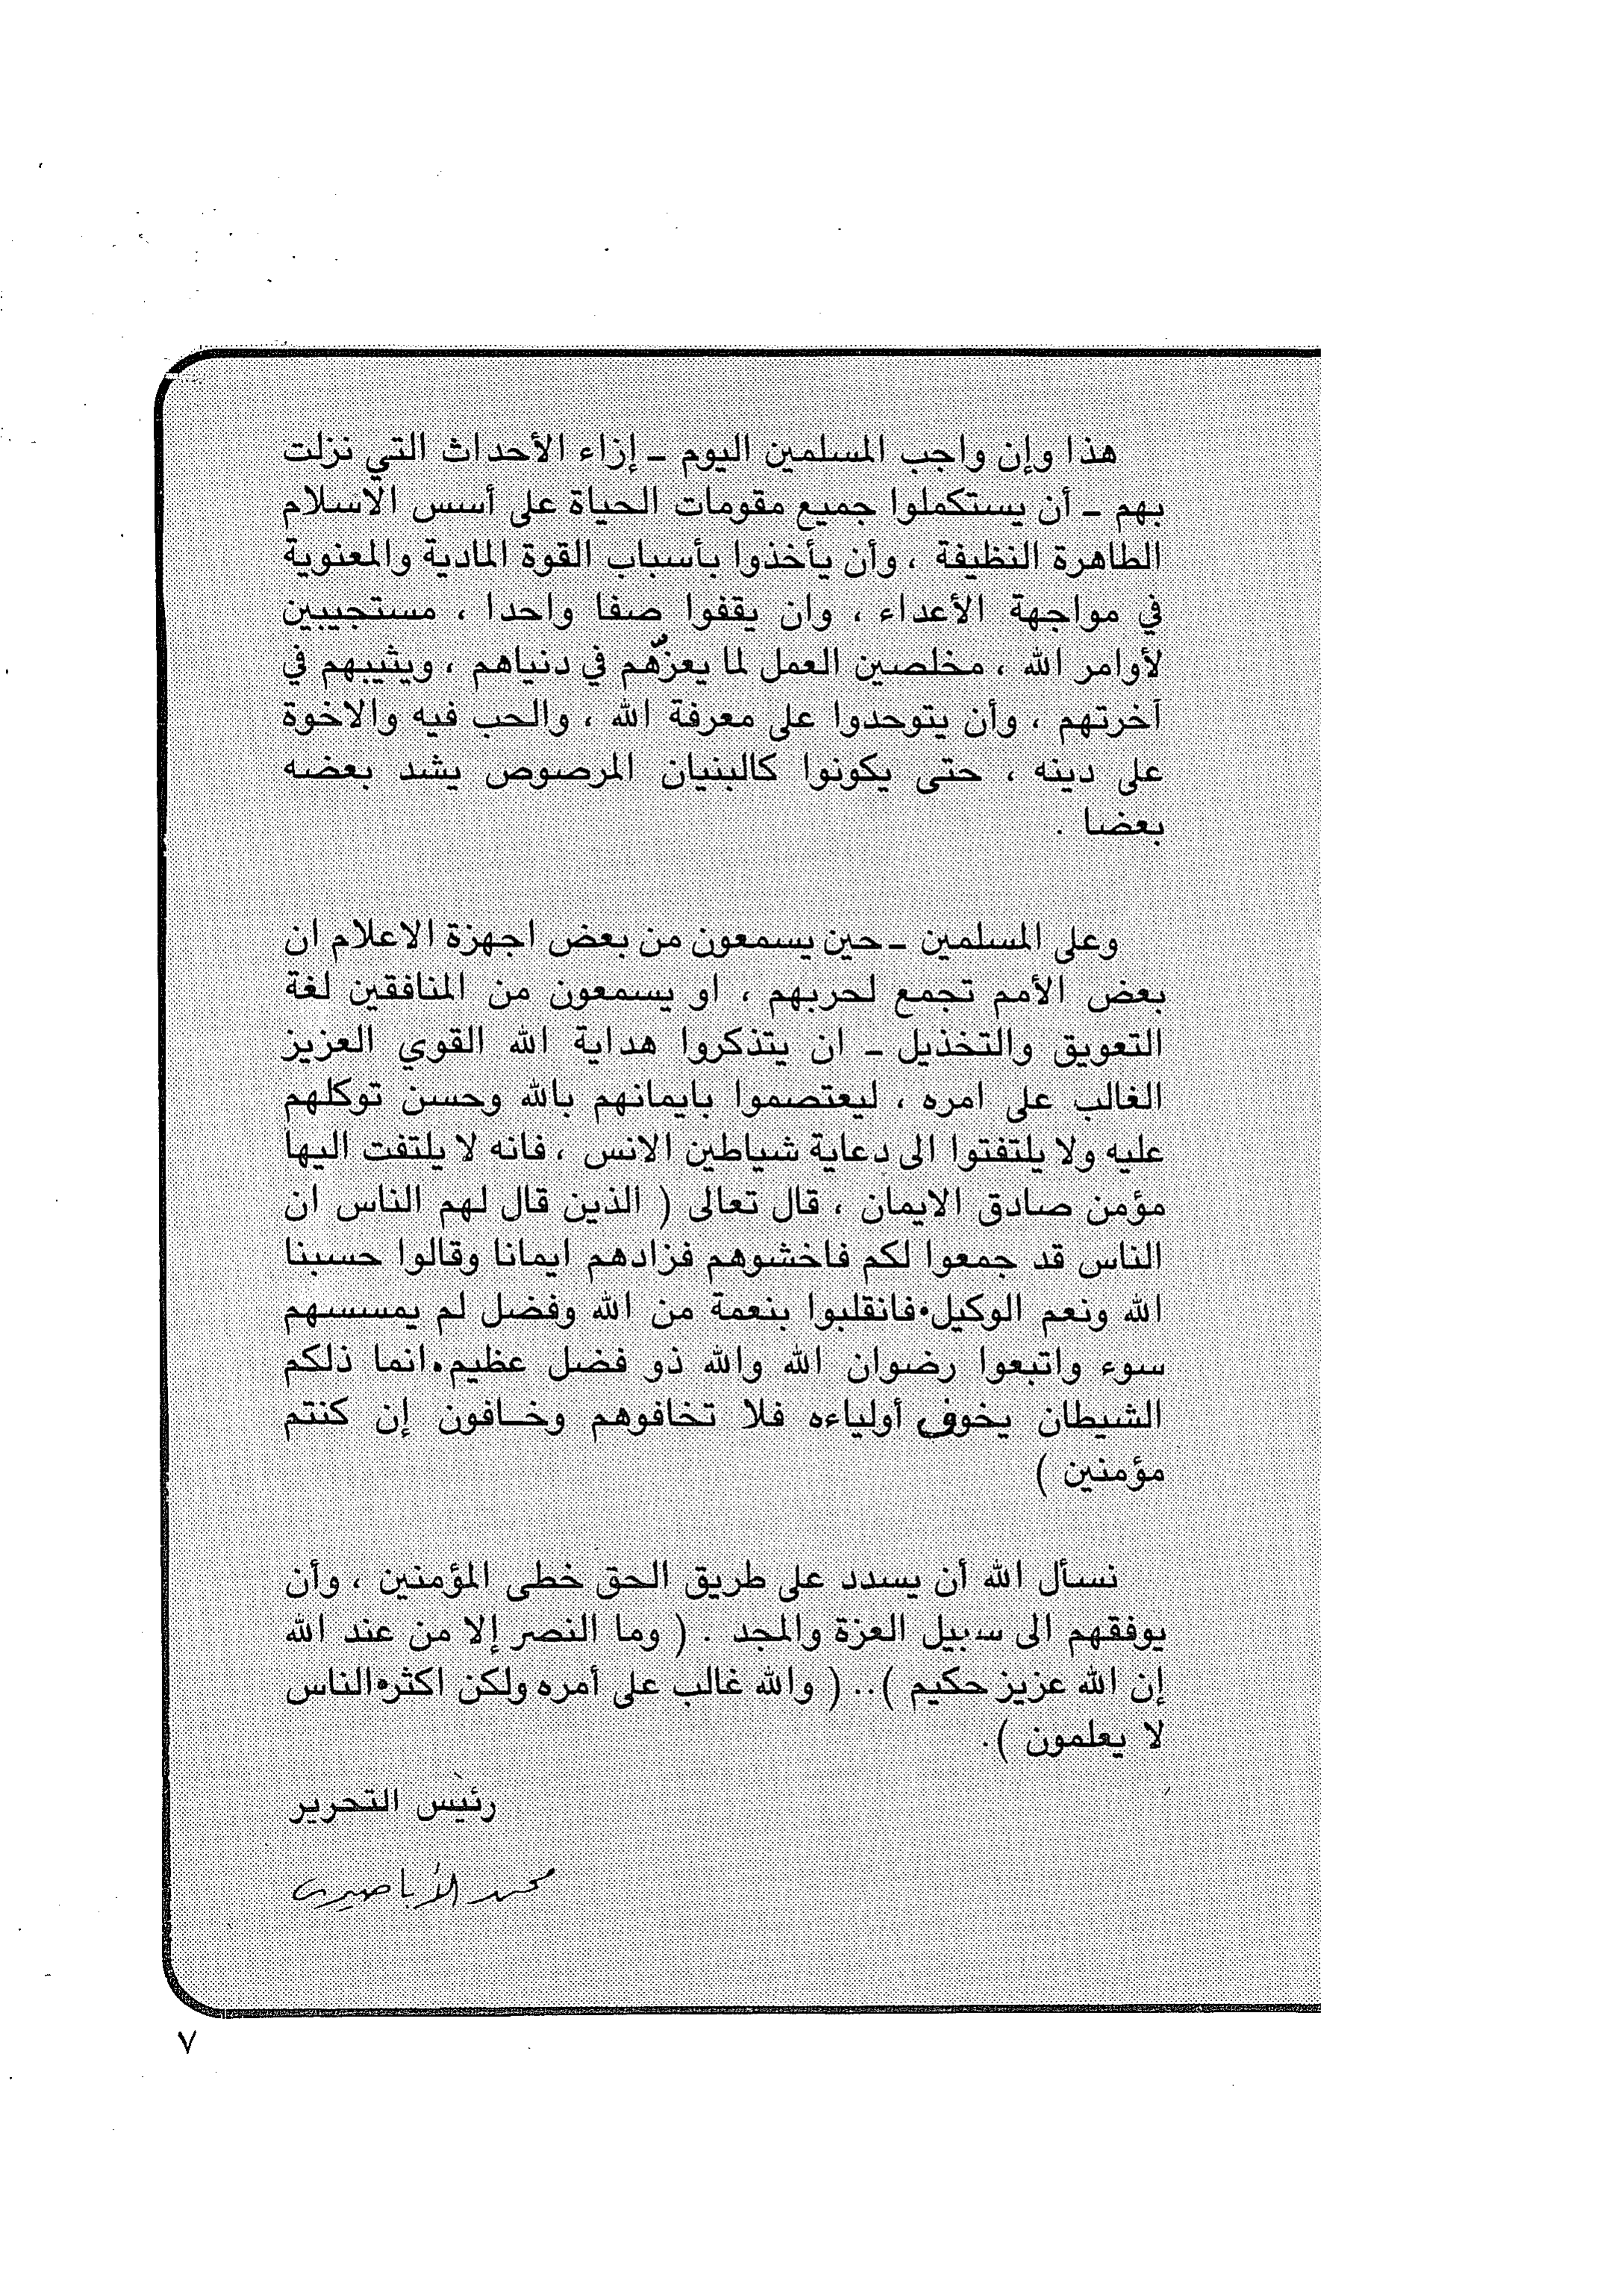 هذا وإن واجب المسلمين اليوم ـ إزاء الأحداث التي نزلت
بهم ـ أن يستكملوا جميع مقومات الحياة على أسس الاسلام
الطاهرة النظيفة ، وأن يأخذوا بأسباب القوة المادية والمعنوية
في مواجهة الأعداء ، وان يقفوا صفا واحدا ، مستجيبين
لأوامر الله ، مخلصين العمل لما يعزّهم في دنياهم ، ويثيبهم في
آخرتهم ، وأن يتوحدوا على معرفة الله ، والحب فيه والاخوة
على دينه ، حتى يكونوا كالبنيان المرصوص يشد بعضه
بعضا .
وعلى المسلمين ـ حين يسمعون من بعض اجهزة الاعلام ان
بعض الأمم تجمع لحربهم ، او يسمعون من المنافقين لغة
التعويق والتخذيل ـ ان يتذكروا هداية الله القوي العزيز
الغالب على امره ، ليعتصموا بايمانهم بالله وحسن توكلهم
عليه ولا يلتفتوا الى دعاية شياطين الانس ، فانه لا يلتفت اليها
مؤمن صادق الايمان ، قال تعالى ( الذين قال لهم الناس ان
الناس قد جمعوا لكم فاخشوهم فزادهم ايمانا وقالوا حسبنا
الله ونعم الوكيل• فانقلبوا بنعمة من الله وفضل لم يمسسهم
سوء واتبعوا رضوان الله والله ذو فضل عظيم• انما ذلكم
الشيطان يخوف أولياءه فلا تخافوهم وخافون إن كنتم
مؤمنين )
نسأل الله أن يسدد على طريق الحق خطى المؤمنين ، وأن
يوفقهم الى سبيل العزة والمجد . ( وما النصر إلا من عند الله
إن الله عزيز حكيم ).. ( والله غالب على أمره ولكن اكثر• الناس
لا يعلمون ).
رئيس التحرير
محمد الأباصيري
٧